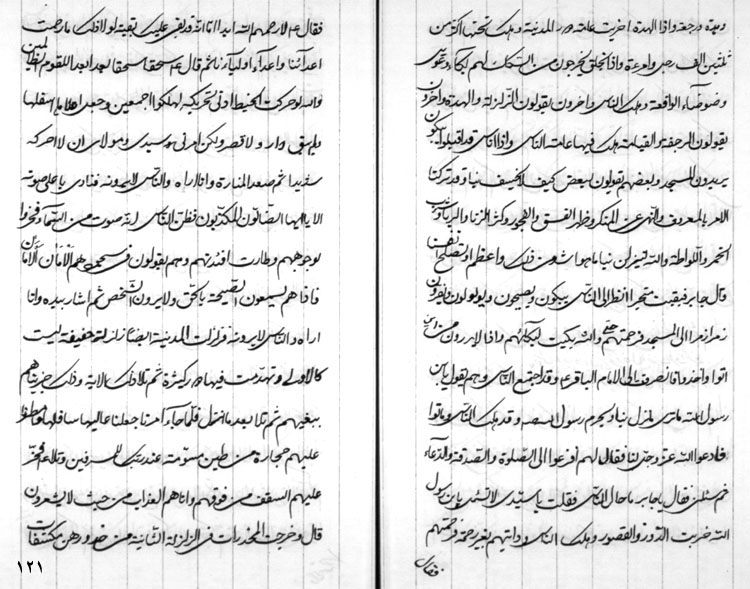 وهدة ورجعة واذا الهدة اخربت عامة دور المدنية وهلك تحتها اكثر من
ثلثين الف رجل وامرءة واذا الخلق يخرجون من السكك لهم بكاء وعويل
وضوضاء الواقعة وهلك الناس واخرون يقولون الزلزلة والهدة واخرون
يقولون الرجفة والقيامة هلك فيها عامة الناس واذا اناس قد اقبلوا يبكون
يريدون المسجد وبعضهم يقولون لبعض كيف لا يخسف بنا وقد تركنا
الامر بالمعروف والنهي عن المنكر وظهر الفسق والفجور وكثر الزنا والربا وشرب
الخمر واللواطة والله لينزلن بنا ما هو اشد من ذلك واعظم او نصلح انفسنا
قال جابر فبقيت متحيرا انظر الى الناس يبكون ويصيحون ويولولون ويغدون
زمرا زمرا الى المسجد فرحمتهم حتى والله بكيت لبكائهم واذا لا يدرون من اين
اتوا واخذوا فانصرفت الى الامام الباقر ع وقد اجتمع الناس وهم يقولون يابن
رسول الله ما ترى ما نزل بنا وبحرم رسول الله ص وقد هلك الناس وماتوا
فادعوا الله عز وجل لنا فقال لهم افزعوا الى الصلوة والصدقة والدعاء
ثم سئلني فقال يا جابر ما حال الناس فقلت يا سيدي لا تسئل يابن رسول
الله خربت الدور والقصور وهلك الناس ورايتهم بغير رحمة فرحمتهم
فقال
فقال ع لا رحمهم الله ابدا اما انه قد بقى عليك بقية لولا ذلك ما رحمت
اعدائنا واعداء اوليائنا ثم قال ع سحقا سحقا بعدا بعدا للقوم الظالمين
والله لو حركت الخيط ادنى تحريكة لهلكوا اجمعين وجعل اعلاها اسفلها
ولم يبق دار ولا قصر ولكن امرني سيدي ومولاي ان لا احركه
شديدا ثم صعد المنارة وانا اراه والناس لا يرونه فنادى باعلى صوته
الا يا ايها الضالون المكذبون فظن الناس انه صوت من السماء فخروا
لوجوههم وطارت افئدتهم وهم يقولون في سجودهم الامان الامان
فاذا هم يسمعون الصيحة بالحق ولا يرون الشخص ثم اشار بيده وانا
اراه والناس لا يرونه فزلزلت المدينة ايضا زلزلة خفيفة ليست
كالاولى وتهدمت فيها دور كثيرة ثم تلا هذه الاية ذلك جزيناهم
ببغيهم ثم تلا بعد ما نزل فلما جاء امرنا جعلنا عاليها سافلها وامطرنا
عليهم حجارة من طين مسومة عند ربك للمسرفين وتلا ع فخر
عليهم السقف من فوقهم واتاهم العذاب من حيث لا يشعرون
قال وخرجت المخدرات في الزلزلة الثانية من خدورهن مكشفات
١٢١